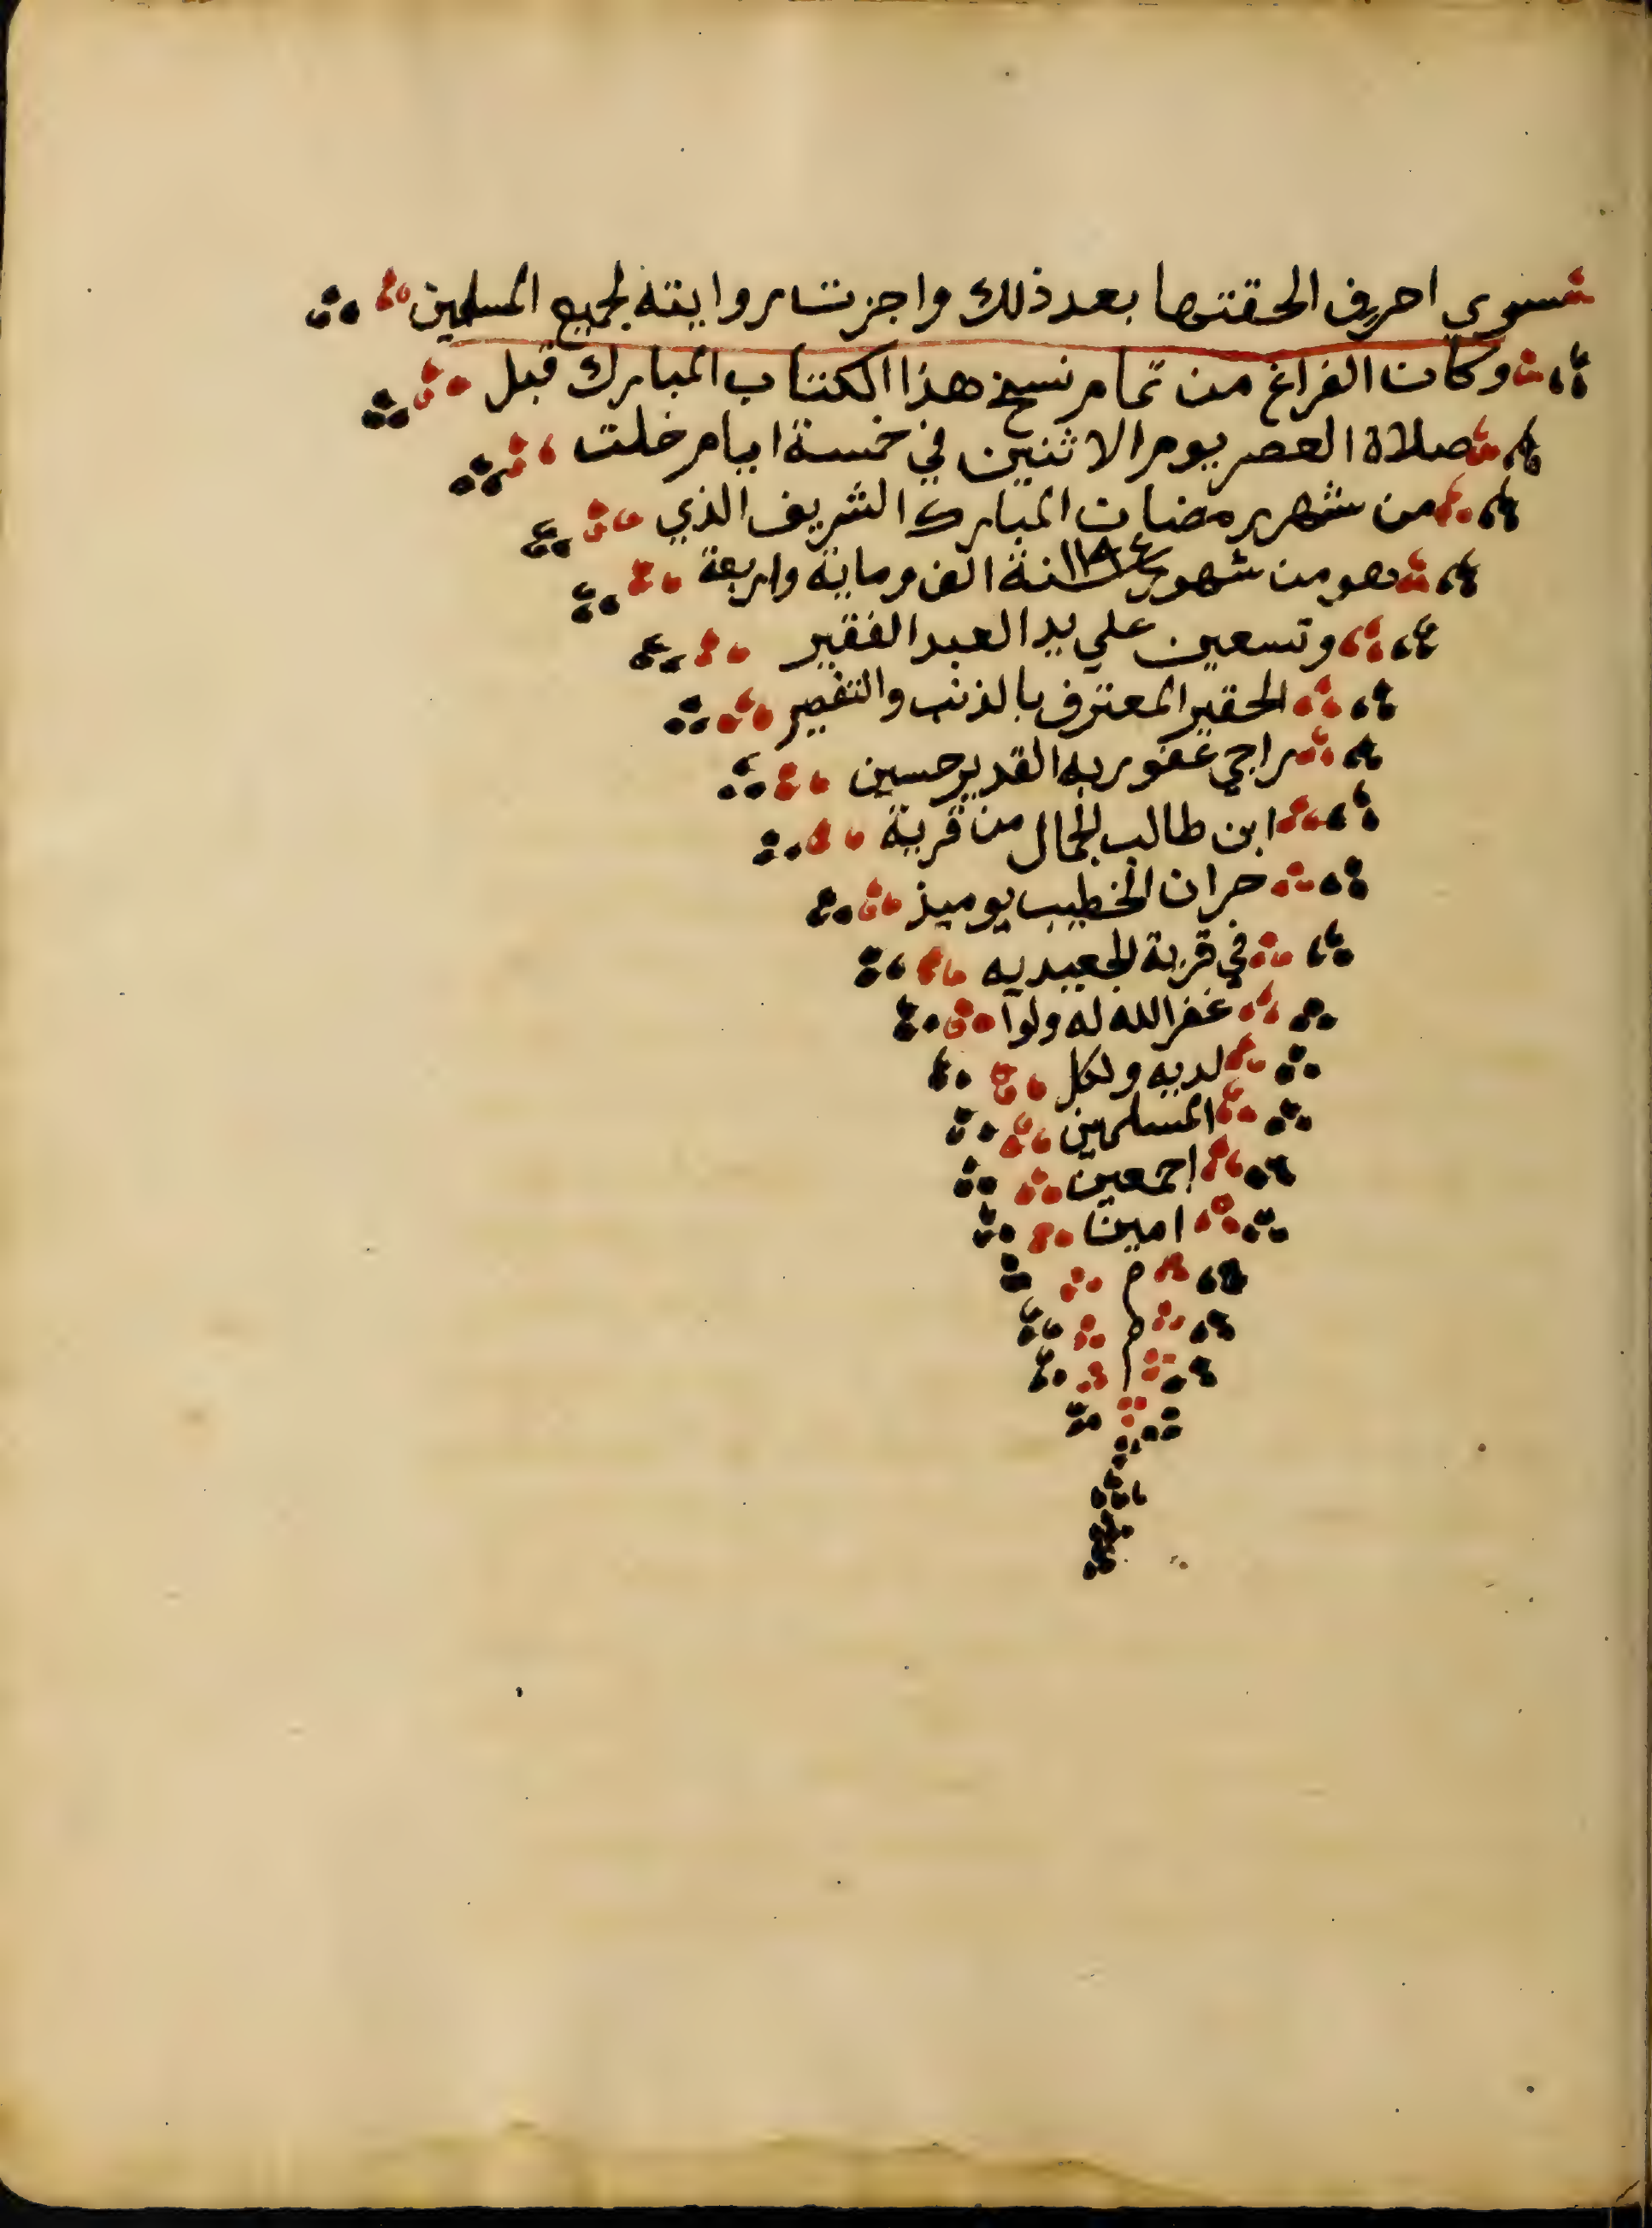 سوى احرف الحقتها بعد ذلك واجزت روايته لجميع المسلمين
وكان الفراغ من تمام نسخ هذا الكتاب المبارك قبل
صلاة العصر يوم الاثنين في خمسة ايام خلت
من شهر رمضان المبارك الشريف الذي
هو من شهور سنة ١١٩٤ الف وماية واربعة
وتسعين علي يد العبد الفقير
الحقير المعترف بالذنب والتقصير
راجي عفو ربه القدير حسين
ابن طالب الجمال من قرية
حران الخطيب يوميذ
في قرية الجعيديه
غفر الله له ولوا
لديه ولكل
المسلمين
اجمعين
امين
م
م